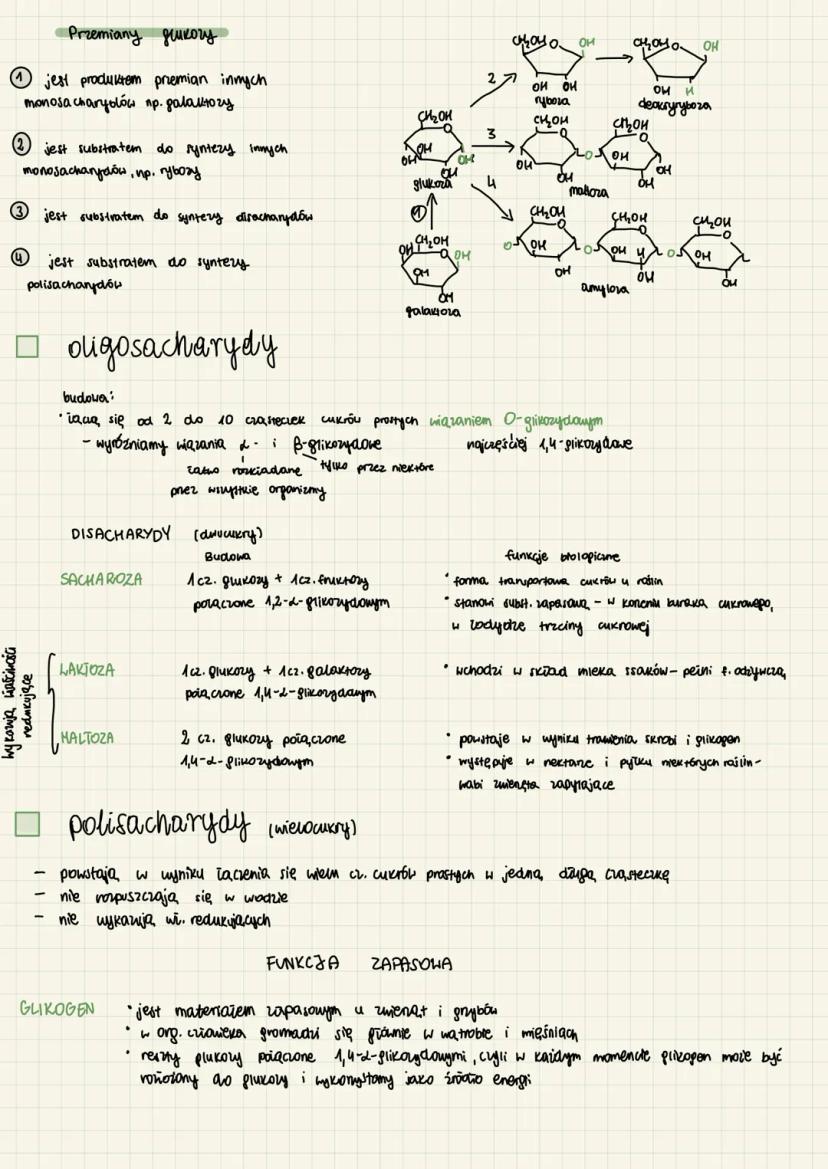 Przemiany glukozy
① jest produktem przemian innych
monosacharydów np. galaktozy
② jest substratem do syntezy innych
monosacharydów, np. rybozy
③ jest substratem do syntezy disacharydów
④ jest substratem do syntezy
polisacharydów
CH₂OH O OH
OH OH
ryboza
CH₂OH O OH
OH H
deoksyryboza
2
3
4
①
CH₂OH
O
OH OH OH
OH
glukoza
CH₂OH
O
OH
OH
O
CH₂OH
O
OH
OH
OH
maltoza
OH CH₂OH
O OH
OH
OH
galaktoza
CH₂OH
O
O OH
OH
O
CH₂OH
O
OH H
OH
O
CH₂OH
O
OH
OH
amyloza
oligosacharydy
budowa:
• łączą się od 2 do 10 cząsteczek cukrów prostych wiązaniem O-glikozydowym
- wyróżniamy wiązania α- i β-glikozydowe najczęściej 1,4-glikozydowe
łatwo rozkładane tylko przez niektóre
przez wszystkie organizmy
DISACHARYDY (dwucukry)
Budowa funkcje biologiczne
SACHAROZA 1 cz. glukozy + 1 cz. fruktozy • forma transportowa cukrów u roślin
połączone 1,2-α-glikozydowym • stanowi subst. zapasową - w korzeniu buraka cukrowego,
w łodydze trzciny cukrowej
wykazują właściwości
redukujące
LAKTOZA 1 cz. glukozy + 1 cz. galaktozy • wchodzi w skład mleka ssaków - pełni f. odżywczą
połączone 1,4-α-glikozydowym
MALTOZA 2 cz. glukozy połączone • powstaje w wyniku trawienia skrobi i glikogen
1,4-α-glikozydowym • występuje w nektarze i pyłku niektórych roślin -
wabi zwierzęta zapylające
polisacharydy (wielocukry)
- powstają w wyniku łączenia się wielu cz. cukrów prostych w jedną, długą cząsteczkę
- nie rozpuszczają się w wodzie
- nie wykazują wł. redukujących
FUNKCJA ZAPASOWA
GLIKOGEN • jest materiałem zapasowym u zwierząt i grzybów
• w org. człowieka gromadzi się głównie w wątrobie i mięśniach
• reszty glukozy połączone 1,4-α-glikozydowymi, czyli w każdym momencie glikogen może być
rozłożony do glukozy i wykorzystamy jako źródło energi